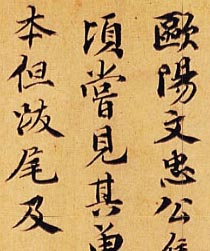 歐陽文忠公
頃嘗見其
本但跋尾及